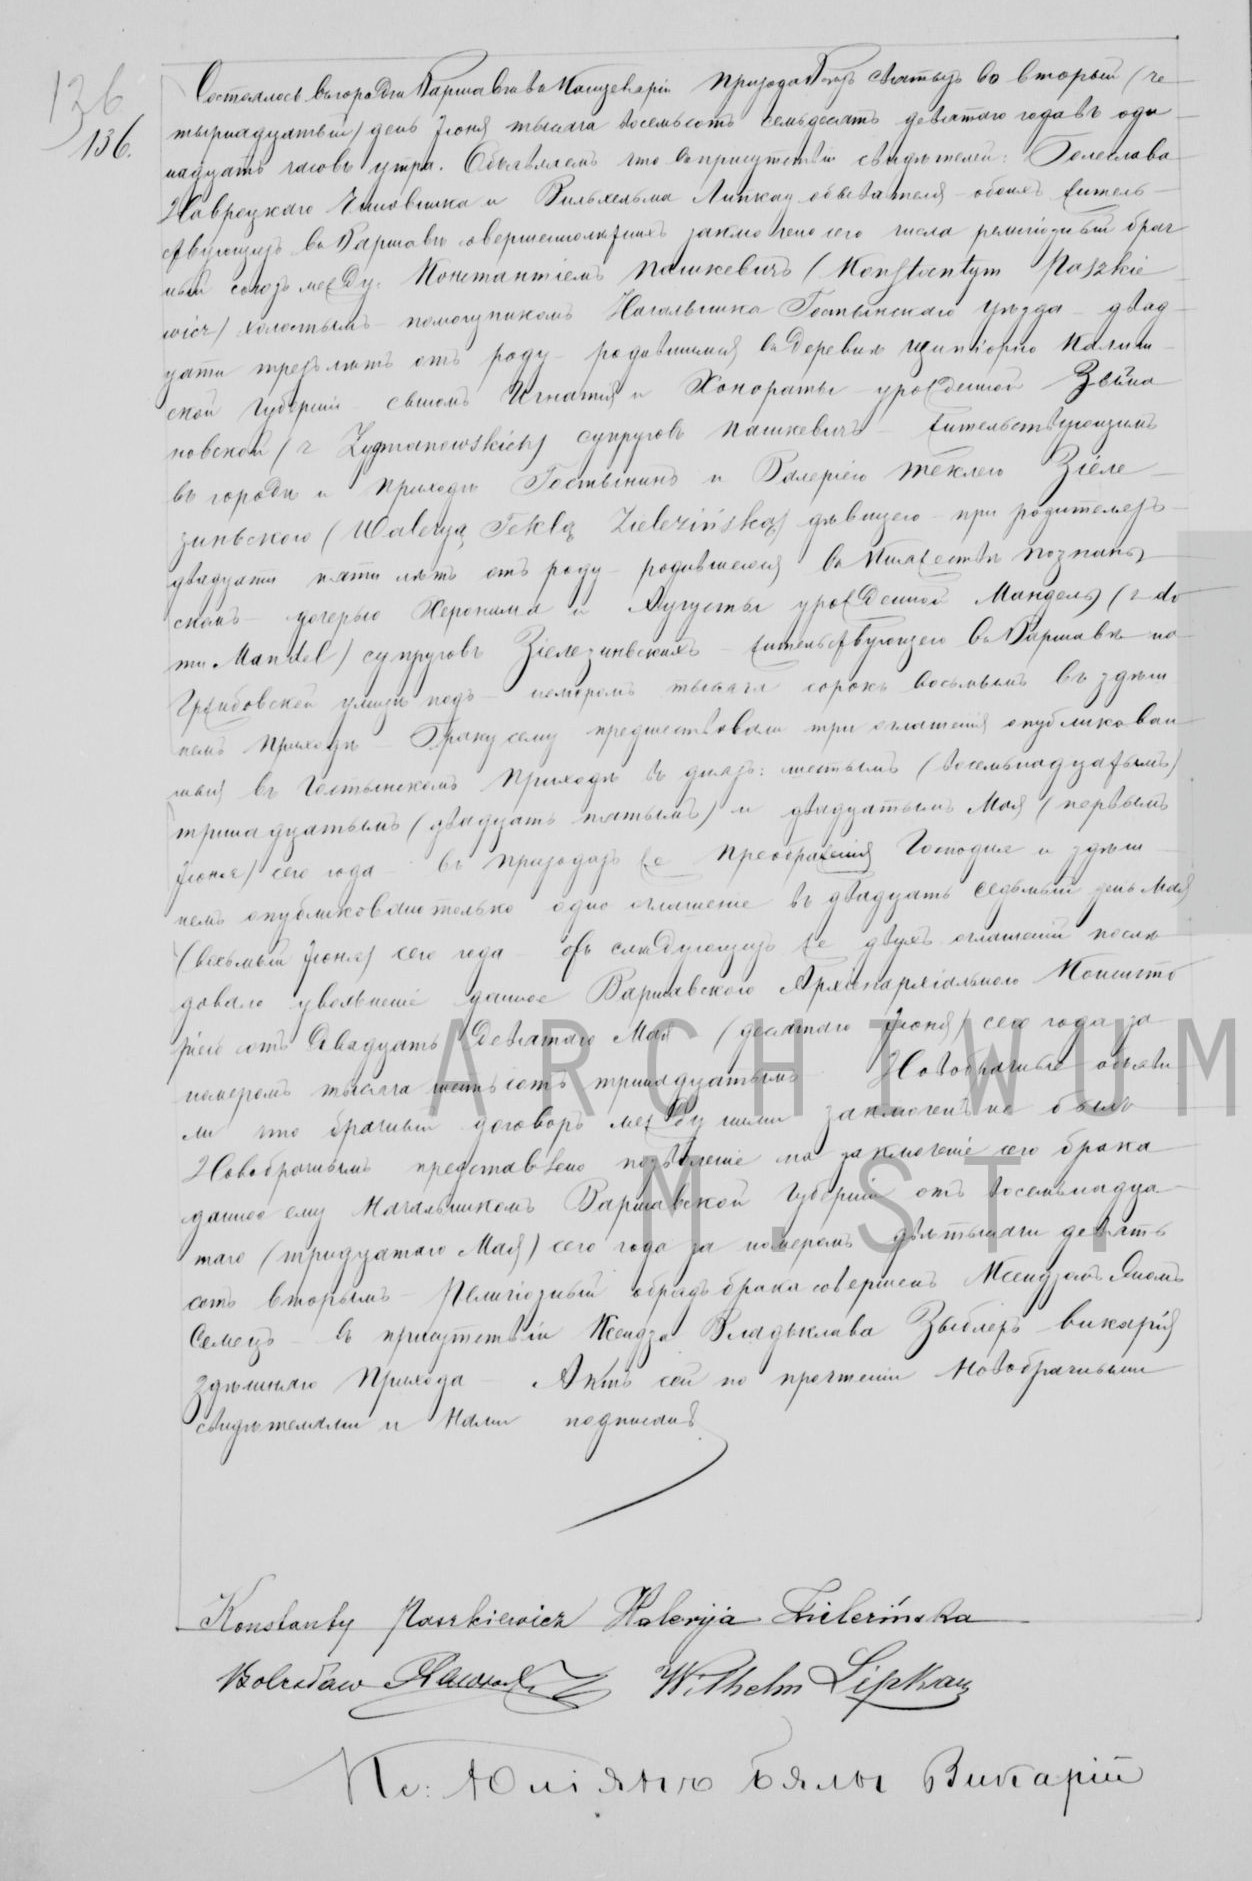 136
136.
Состоялось въ городѣ Варшавѣ въ Канцеляріи Прихода Всѣхъ Святыхъ во вторый (че
тырнадцатый) день Іюня тысяча восемьсотъ семьдесятъ девятаго года въ оди
надцать часовъ утра. Объявляемъ что въ присутствіи свидѣтелей: Болеслава
Наврецкаго Чиновника и Вильхельма Липкау обывателя – обоихъ житель
ствующихъ въ Варшавѣ совершеннолѣтнихъ заключено сего числа религіозный брач
ный союзъ между: Константіемъ Пашкевичъ (Konstantym Paszkie
wicz) холостымъ – помощникомъ Начальника Гостынскаго Уѣзда – двад
цати трехъ лѣтъ отъ роду – родившимся въ деревнѣ Щипіорно Калиш
ской Губерніи – сыномъ Игнатія и Хонораты – урожденной Зыгма
новской (z Zygmanowskich) супруговъ Пашкевичъ – жительствующимъ
въ городѣ и Приходѣ Гостынинъ и Валеріею Теклею Зіеле
зиньскою (Walerya Teklą Zielezińską) дѣвицею – при родителяхъ –
двадцати пяти лѣтъ отъ роду – родившеюся въ Княжествѣ Познань
скомъ – дочерью Херонима и Аугусты урожденной Мандель (z do
mu Mandel) супруговъ Зіелезинскихъ – жительствующею въ Варшавѣ на
Гржибовской улицѣ подъ – номеромъ тысяча сорокъ восьмымъ въ здѣш
немъ Приходѣ – Браку сему предшествовали три оглашенія опубликован
ныя въ Гостынскомъ Приходѣ въ дняхъ: шестымъ (восемьнадцатымъ)
тринадцатымъ (двадцать пятымъ) и двадцатымъ Мая (первымъ
Іюня) сего года – въ Приходахъ же Преображенія Господня и здѣш
немъ опубликовано только одно оглашеніе въ двадцать седьмый день Мая
(восьмый Іюня) сего года – отъ слѣдующихъ же двухъ оглашеній послѣ
довало увольненіе данное Варшавскою Архіепархіальною Консисто
ріею отъ Двадцать Девятаго Мая (десятаго Іюня) сего года за
номеромъ тысяча шестьсотъ тринадцатымъ – Новобрачные объяви
ли что брачный договоръ между ними заключенъ не былъ
Новобрачнымъ представлено позволеніе на заключеніе сего брака
данное ему Начальникомъ Варшавской Губерніи отъ восемьнадца
таго (тридцатаго Мая) сего года за номеромъ двѣ тысячи девять
сотъ вторымъ – Религіозный обрядъ брака совершенъ Ксендзомъ Яномъ
Семецъ – въ присутствіи Ксендза Владыслава Зыблеръ – викарія
здѣшняго Прихода – Актъ сей по прочтеніи Новобрачными
свидѣтелями и Нами подписанъ
Konstanty Paszkiewicz Walerija Zielezińska
Bolesław Wilhelm Lipkau
Кс: Юліянъ Бялы Викарій
ARCHIWUM
M.ST